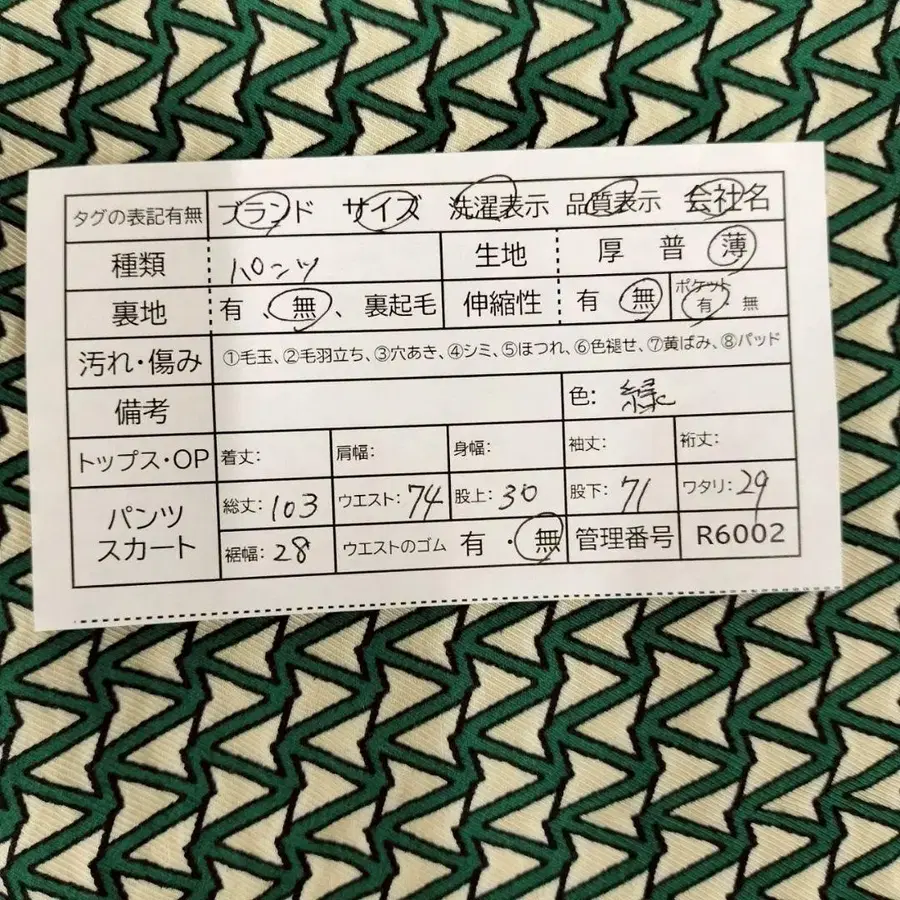 タグの表記有無 ブランド サイズ 洗濯表示 品質表示 会社名
種類 パンツ 生地 厚 普 薄
裏地 有 、 無 、 裏起毛 伸縮性 有 無 ポケット 有 ・ 無
汚れ・傷み ①毛玉、②毛羽立ち、③穴あき、④シミ、⑤ほつれ、⑥色褪せ、⑦黄ばみ、⑧パッド
備考 色: 緑
トップス・OP 着丈: 肩幅: 身幅: 袖丈: 裄丈:
パンツ スカート 総丈: 103 ウエスト: 74 股上: 30 股下: 71 ワタリ: 29
裾幅: 28 ウエストのゴム 有 ・ 無 管理番号 R6002